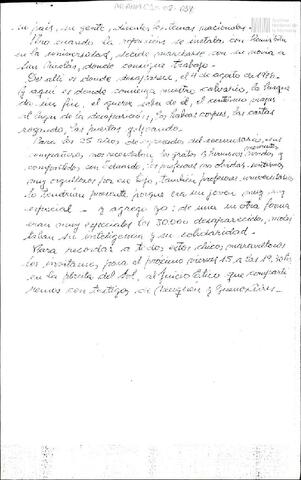 su país, su gente, nuestros problemas nacionales.
Pero cuando la represión se instala con Remus Tetu
en la universidad, decide marcharse con su novia a
San Nicolás, donde consigue trabajo.
De allí es donde desaparece, el 4 de agosto de 1976.
Y aquí es donde comienza nuestro calvario, la búsqueda
sin fin, el querer saber de él, el continuo
lugar de la desaparición, los habeas corpus, las cartas
rogando, las puertas golpeando.
Para los 25 años de egresados del secundario, sus
compañeros, nos recordaban los gratos y hermosos momentos vividos y
compartidos con Eduardo, los profesores no olvidaban
muy orgullosos por ser hijo, también profesores universitarios
lo tendrían presente porque era un joven muy muy
especial - y agrego yo: de una u otra forma
eran muy especiales los 30.000 desaparecidos, moles
taban su inteligencia y su solidaridad.
Para recordar a todos estos chicos maravillosos
los invitamos para el próximo viernes 15 a las 19.30 hs
en la planta del Sol, al juicio ético que comparti
remos con testigos de Neuquén y Buenos Aires.